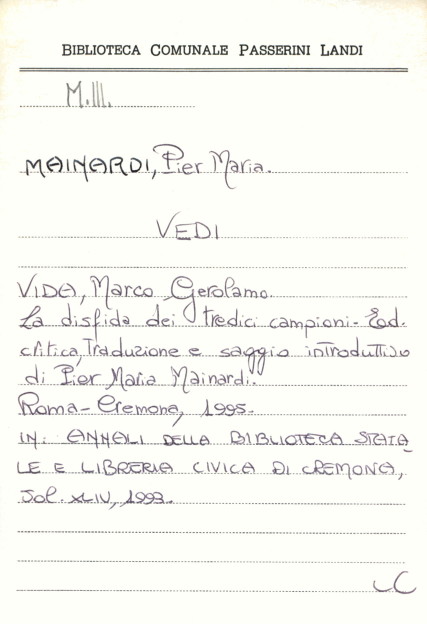 BIBLIOTECA COMUNALE PASSERINI LANDI
M.III.
MAINARDI, Pier Maria.
VEDI
VIDA, Marco Gerolamo.
La disfida dei tredici campioni - Ed.
critica, traduzione e saggio introduttivo
di Pier Maria Mainardi.
Roma - Cremona, 1995.
IN: ANNALI DELLA BIBLIOTECA STATA
LE E LIBRERIA CIVICA DI CREMONA,
Vol. XLIV, 1993.